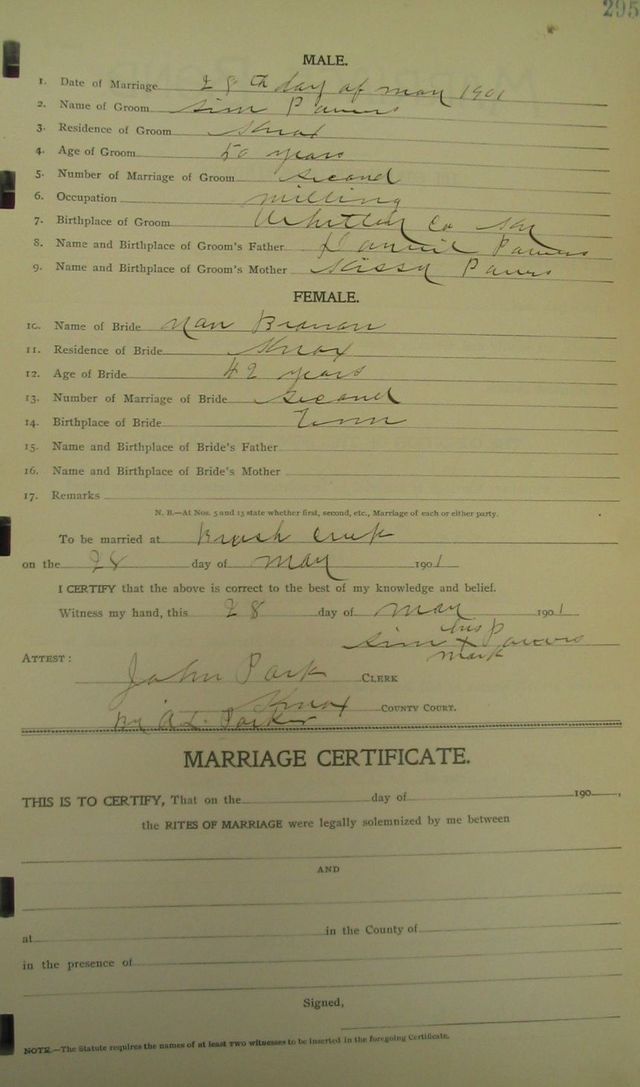 295
MALE.
1. Date of Marriage 28th day of may 1901
2. Name of Groom Sim Powers
3. Residence of Groom Knox
4. Age of Groom 50 years
5. Number of Marriage of Groom Second
6. Occupation milling
7. Birthplace of Groom Whitley Co Ky
8. Name and Birthplace of Groom's Father Powers
9. Name and Birthplace of Groom's Mother Powers
FEMALE.
10. Name of Bride Nan
11. Residence of Bride Knox
12. Age of Bride 42 years
13. Number of Marriage of Bride Second
14. Birthplace of Bride Tenn
15. Name and Birthplace of Bride's Father
16. Name and Birthplace of Bride's Mother
17. Remarks
N. B.—At Nos. 5 and 13 state whether first, second, etc., Marriage of each or either party.
To be married at Brush Creek
on the 28 day of may 1901
I CERTIFY that the above is correct to the best of my knowledge and belief.
Witness my hand, this 28 day of may 1901
his
Sim x Powers
mark
ATTEST:
John Park CLERK
Knox COUNTY COURT.
By A. L. Parker
MARRIAGE CERTIFICATE.
THIS IS TO CERTIFY, That on the day of 190 ,
the RITES OF MARRIAGE were legally solemnized by me between
AND
at in the County of
in the presence of
Signed,
NOTE.—The Statute requires the names of at least TWO witnesses to be inserted in the foregoing Certificate.